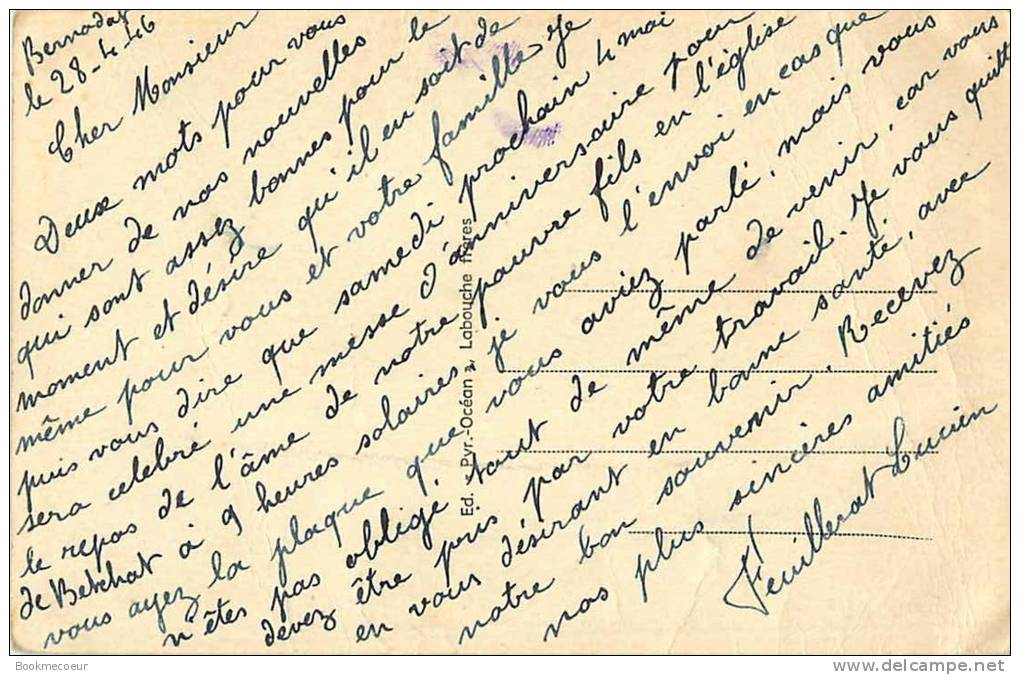 Bernadat
le 28-4-46
Cher Monsieur
Deux mots pour vous
donner de nos nouvelles
qui sont assez bonnes pour le
moment et désire qu'il en soit de
même pour vous et votre famille. Je
puis vous dire que samedi prochain 4 mai
sera celebré une messe d'anniversaire pour
le repos de l'âme de notre pauvre fils en l'église
de Betchat à 9 heures solaires. je vous l'envoi en cas que
vous ayez la plaque que vous aviez parlé, mais vous
n'êtes pas obligé tout de même de venir, car vous
devez être pris par votre travail. Je vous quitte
en vous désirant en bonne santé, avec
notre bon souvenir. Recevez
nos plus sincères amitiés
Feuillerat Lucien
Ed. Pyr.-Océan, Labouche frères
Bookmecoeur
www.delcampe.net